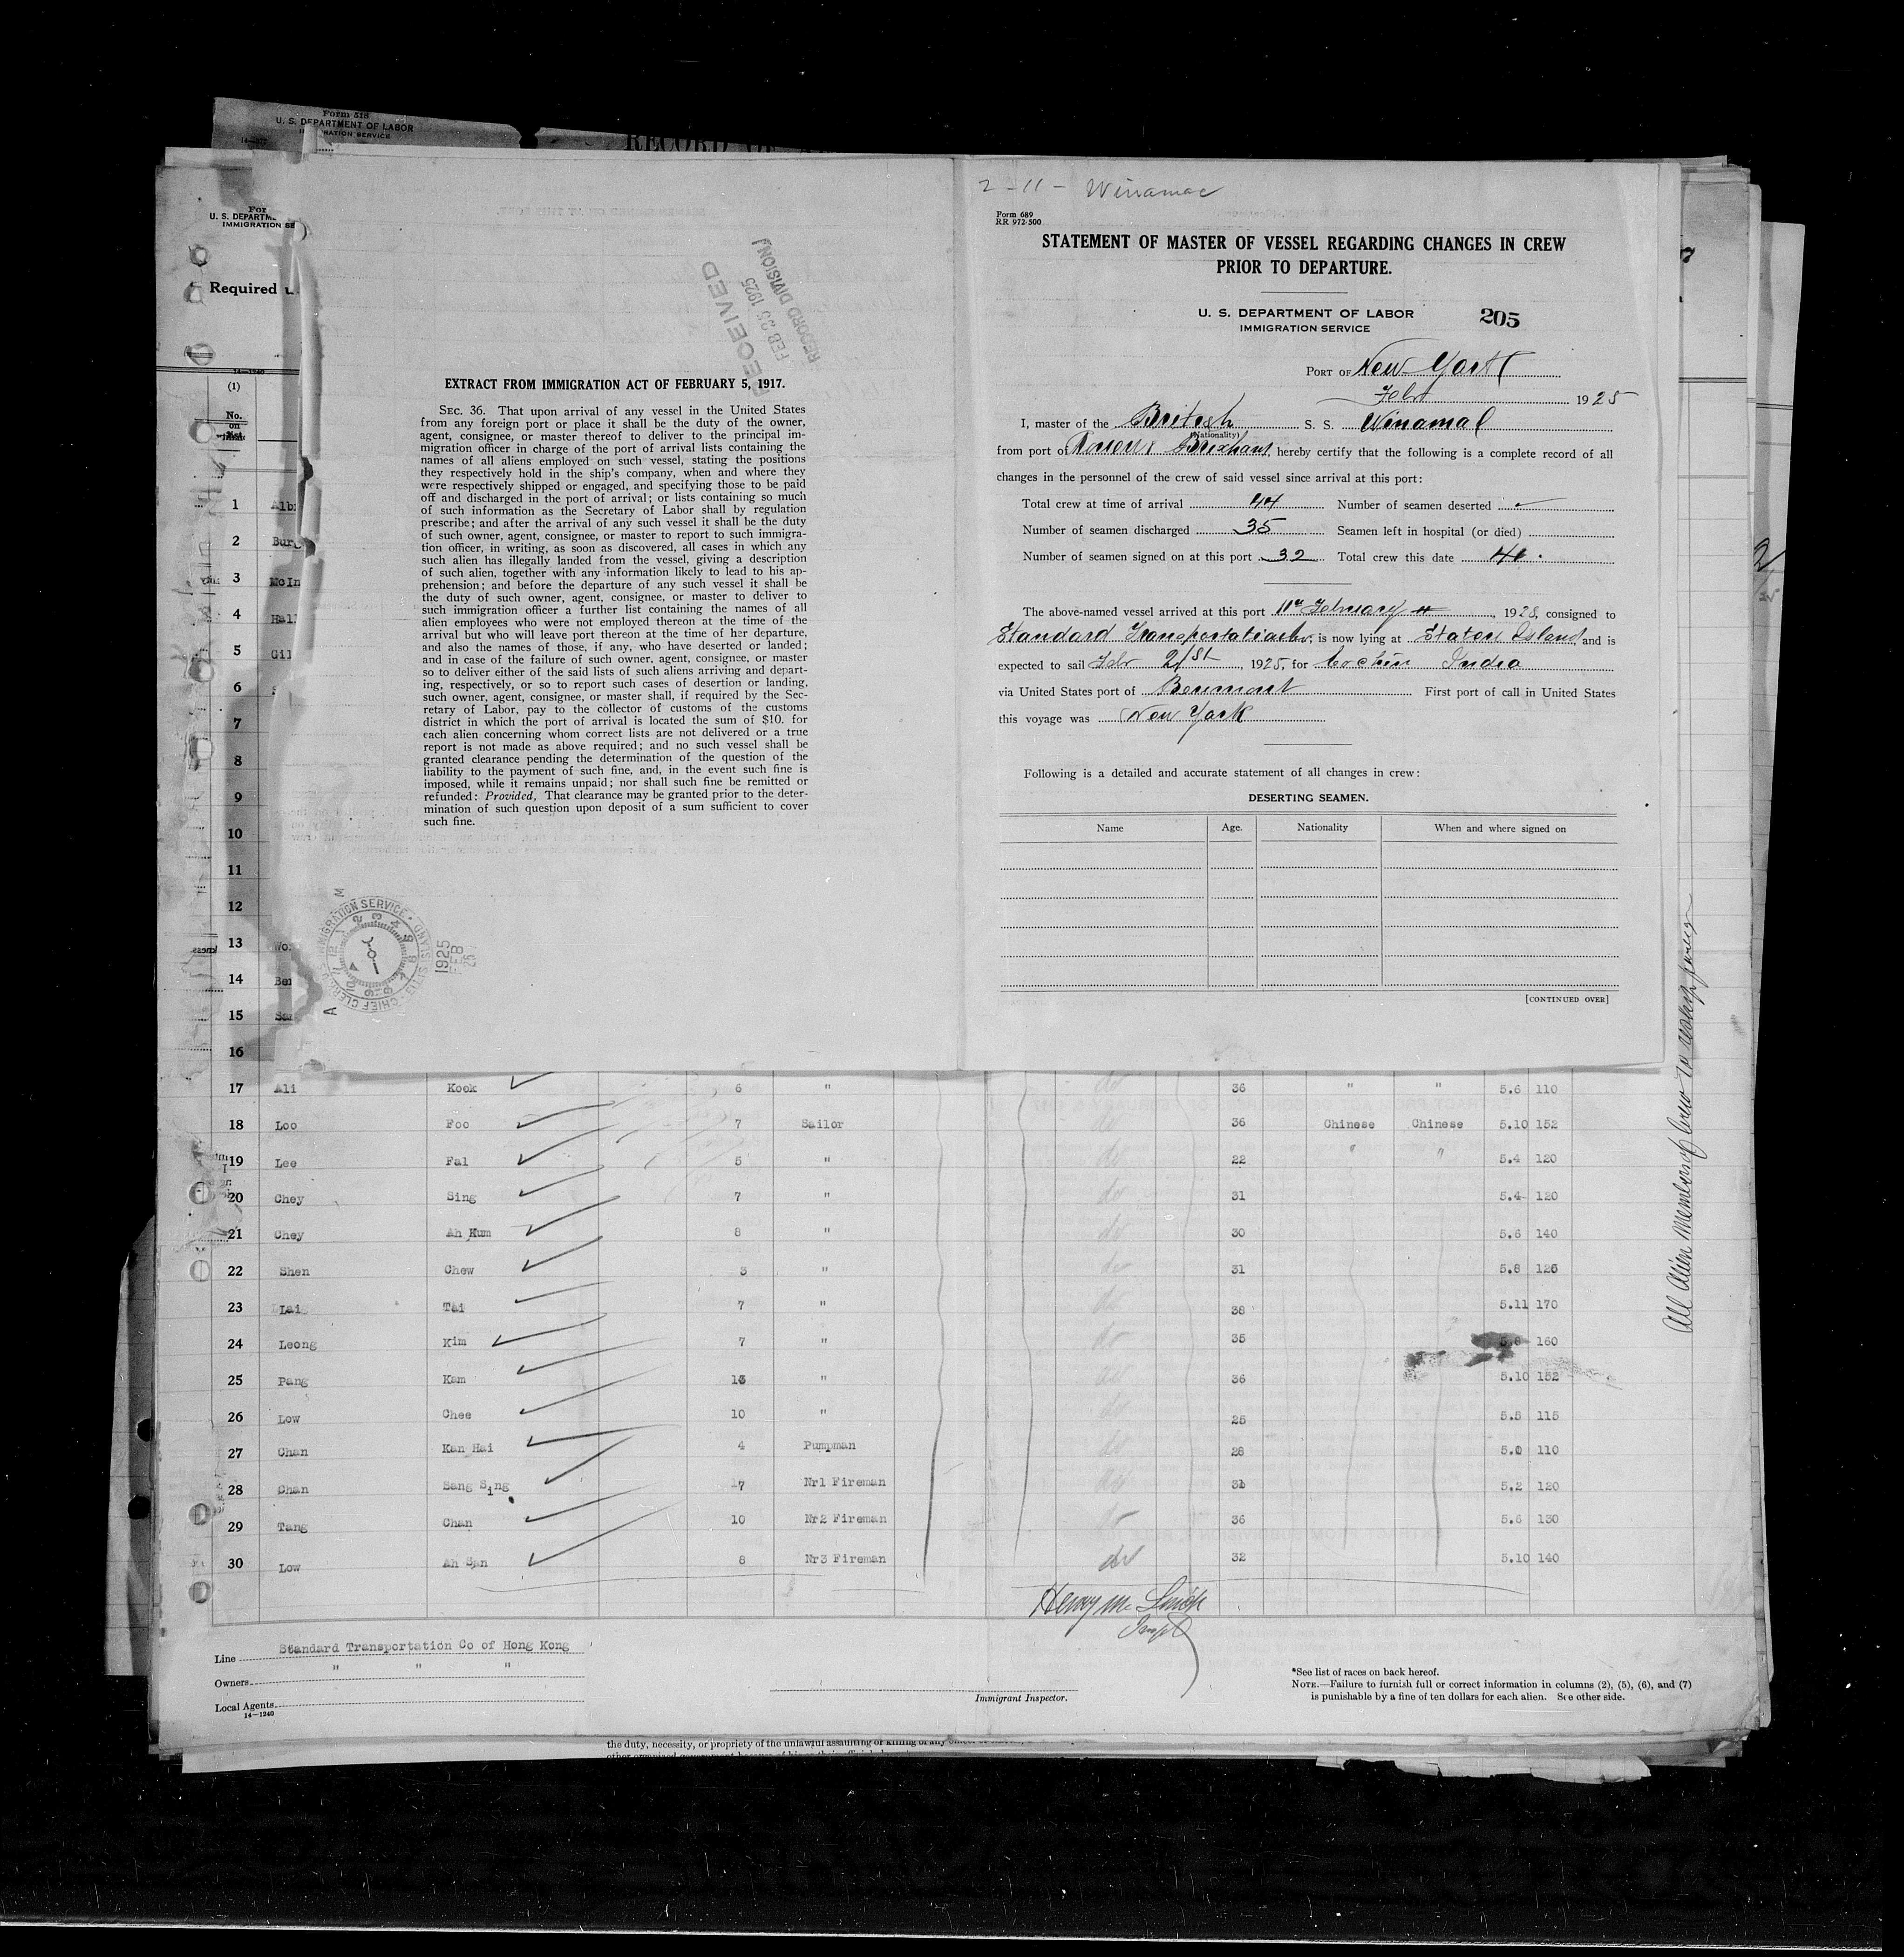 Form 518
U. S. DEPARTMENT OF LABOR
IMMIGRATION SERVICE
RECORD OF
For
U. S. DEPARTM
IMMIGRATION SE
Required u
14—1240
(1)
No.
on
List
1 Alb
2 Burg
3 McIn
4 Hall
5 Gil
6 S
7
8
9
10
11
12
13 Wo
14 Ber
15 Sa
16
RECEIVED
FEB 26 1925
RECORD DIVISION
EXTRACT FROM IMMIGRATION ACT OF FEBRUARY 5, 1917.
SEC. 36. That upon arrival of any vessel in the United States
from any foreign port or place it shall be the duty of the owner,
agent, consignee, or master thereof to deliver to the principal im-
migration officer in charge of the port of arrival lists containing the
names of all aliens employed on such vessel, stating the positions
they respectively hold in the ship's company, when and where they
were respectively shipped or engaged, and specifying those to be paid
off and discharged in the port of arrival; or lists containing so much
of such information as the Secretary of Labor shall by regulation
prescribe; and after the arrival of any such vessel it shall be the duty
of such owner, agent, consignee, or master to report to such immigra-
tion officer, in writing, as soon as discovered, all cases in which any
such alien has illegally landed from the vessel, giving a description
of such alien, together with any information likely to lead to his ap-
prehension; and before the departure of any such vessel it shall be
the duty of such owner, agent, consignee, or master to deliver to
such immigration officer a further list containing the names of all
alien employees who were not employed thereon at the time of the
arrival but who will leave port thereon at the time of her departure,
and also the names of those, if any, who have deserted or landed;
and in case of the failure of such owner, agent, consignee, or master
so to deliver either of the said lists of such aliens arriving and depart-
ing, respectively, or so to report such cases of desertion or landing,
such owner, agent, consignee, or master shall, if required by the Sec-
retary of Labor, pay to the collector of customs of the customs
district in which the port of arrival is located the sum of $10. for
each alien concerning whom correct lists are not delivered or a true
report is not made as above required; and no such vessel shall be
granted clearance pending the determination of the question of the
liability to the payment of such fine, and, in the event such fine is
imposed, while it remains unpaid; nor shall such fine be remitted or
refunded: Provided, That clearance may be granted prior to the deter-
mination of such question upon deposit of a sum sufficient to cover
such fine.
IMMIGRATION SERVICE
ELLIS ISLAND
CHIEF CLERK
1925
FEB
2 - 11 - Winamac
Form 689
RR 972-500
STATEMENT OF MASTER OF VESSEL REGARDING CHANGES IN CREW
PRIOR TO DEPARTURE.
U. S. DEPARTMENT OF LABOR
IMMIGRATION SERVICE
205
PORT OF New York
Febr 1925
I, master of the British S. S. Winamac
(Nationality)
from port of Rouen & Brixham, hereby certify that the following is a complete record of all
changes in the personnel of the crew of said vessel since arrival at this port:
Total crew at time of arrival 44 Number of seamen deserted
Number of seamen discharged 35 Seamen left in hospital (or died)
Number of seamen signed on at this port 32 Total crew this date 41.
The above-named vessel arrived at this port 11th February, 1925, consigned to
Standard Transportation Co, is now lying at Staten Island, and is
expected to sail Febr 21st, 1925, for Cochin India
via United States port of Beaumont First port of call in United States
this voyage was New York
Following is a detailed and accurate statement of all changes in crew:
DESERTING SEAMEN.
Name Age. Nationality When and where signed on
[CONTINUED OVER]
17 Ali Kook 6 " 36 " " 5.6 110
18 Loo Foo 7 Sailor do 36 Chinese Chinese 5.10 152
19 Lee Fal 5 " do 22 " " 5.4 120
20 Chey Sing 7 " do 31 5.4 120
21 Chey Ah Kum 8 " do 30 5.6 140
22 Shen Chew 3 " do 31 5.8 126
23 Lai Tai 7 " do 38 5.11 170
24 Leong Kim 7 " do 35 5.8 160
25 Pang Kam 13 " do 36 5.10 152
26 Low Chee 10 " do 25 5.5 115
27 Chan Kan Hai 4 Pumpman do 28 5.0 110
28 Chan Sang Sing 17 Nr1 Fireman do 31 5.2 120
29 Tang Chan 10 Nr2 Fireman do 36 5.6 130
30 Low Ah San 8 Nr3 Fireman do 32 5.10 140
Henry M. Smith
Inspt
Line Standard Transportation Co of Hong Kong
Owners " " "
Local Agents
14—1240
Immigrant Inspector.
*See list of races on back hereof.
NOTE.—Failure to furnish full or correct information in columns (2), (5), (6), and (7)
is punishable by a fine of ten dollars for each alien. See other side.
All alien members of crew to
the duty, necessity, or propriety of the unlawful assaulting or killing of any